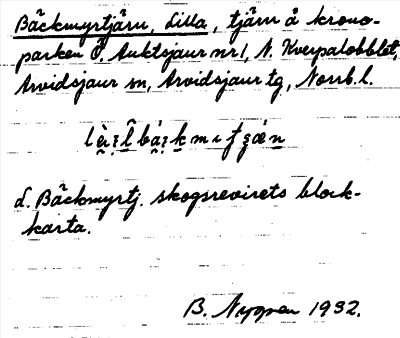 Bäckmyrtjärn, Lilla, tjärn å krono-
parken Ö. Auktsjaur nr 1, N. Kverpalobblet,
Arvidsjaur sn, Arvidsjaur tg, Norrb. l.
d. Bäckmyrtj. skogsrevirets block-
karta.
B. Nygren 1932.